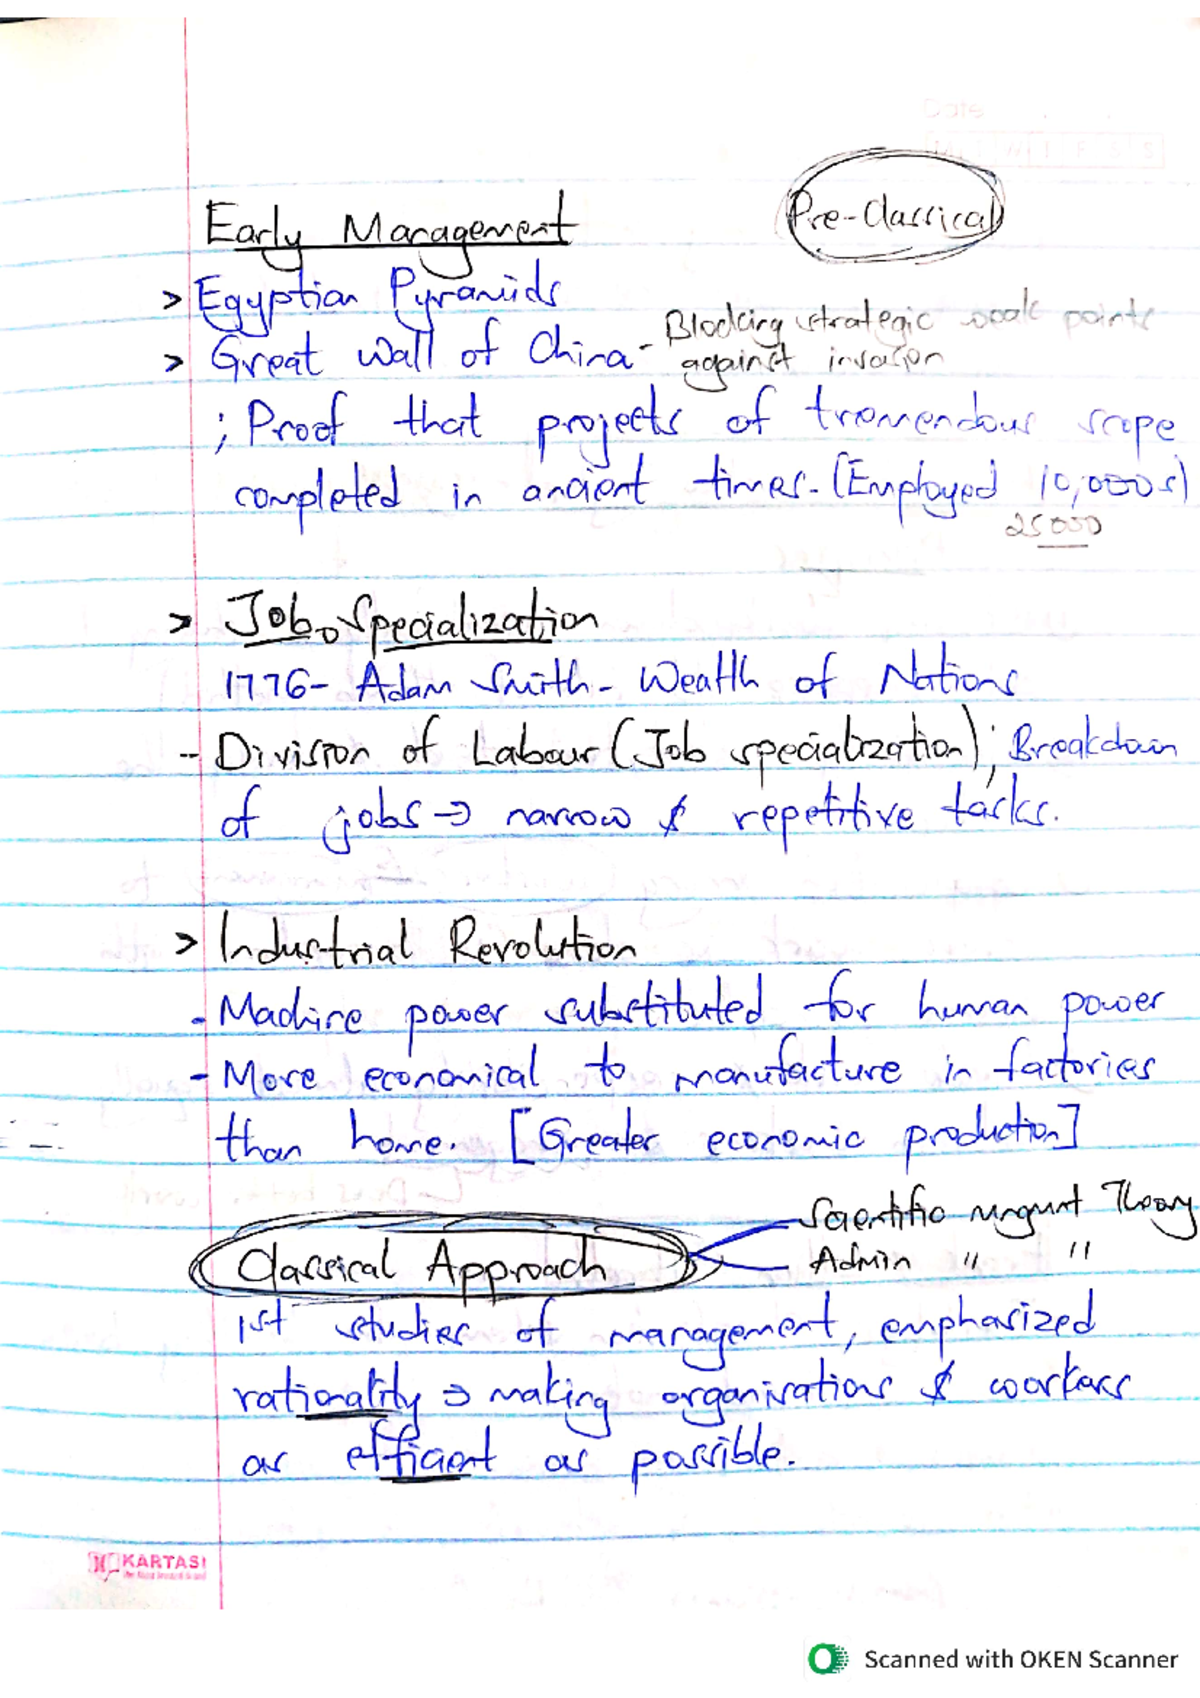 Date
M T W T F S S
Pre-Classical
Early Management
> Egyptian Pyramids
> Great Wall of China - Blocking strategic weak points
against invasion
; Proof that projects of tremendous scope
completed in ancient times. (Employed 10,000s)
25000
> Job Specialization
1776- Adam Smith - Wealth of Nations
- Division of Labour (Job specialization); Breakdown
of jobs → narrow & repetitive tasks.
> Industrial Revolution
- Machine power substituted for human power
- More economical to manufacture in factories
than home. [Greater economic production]
Scientific mngmnt Theory
Classical Approach
Admin " "
1st studies of management, emphasized
rationality → making organisations & workers
as efficient as possible.
KARTASI
Scanned with OKEN Scanner